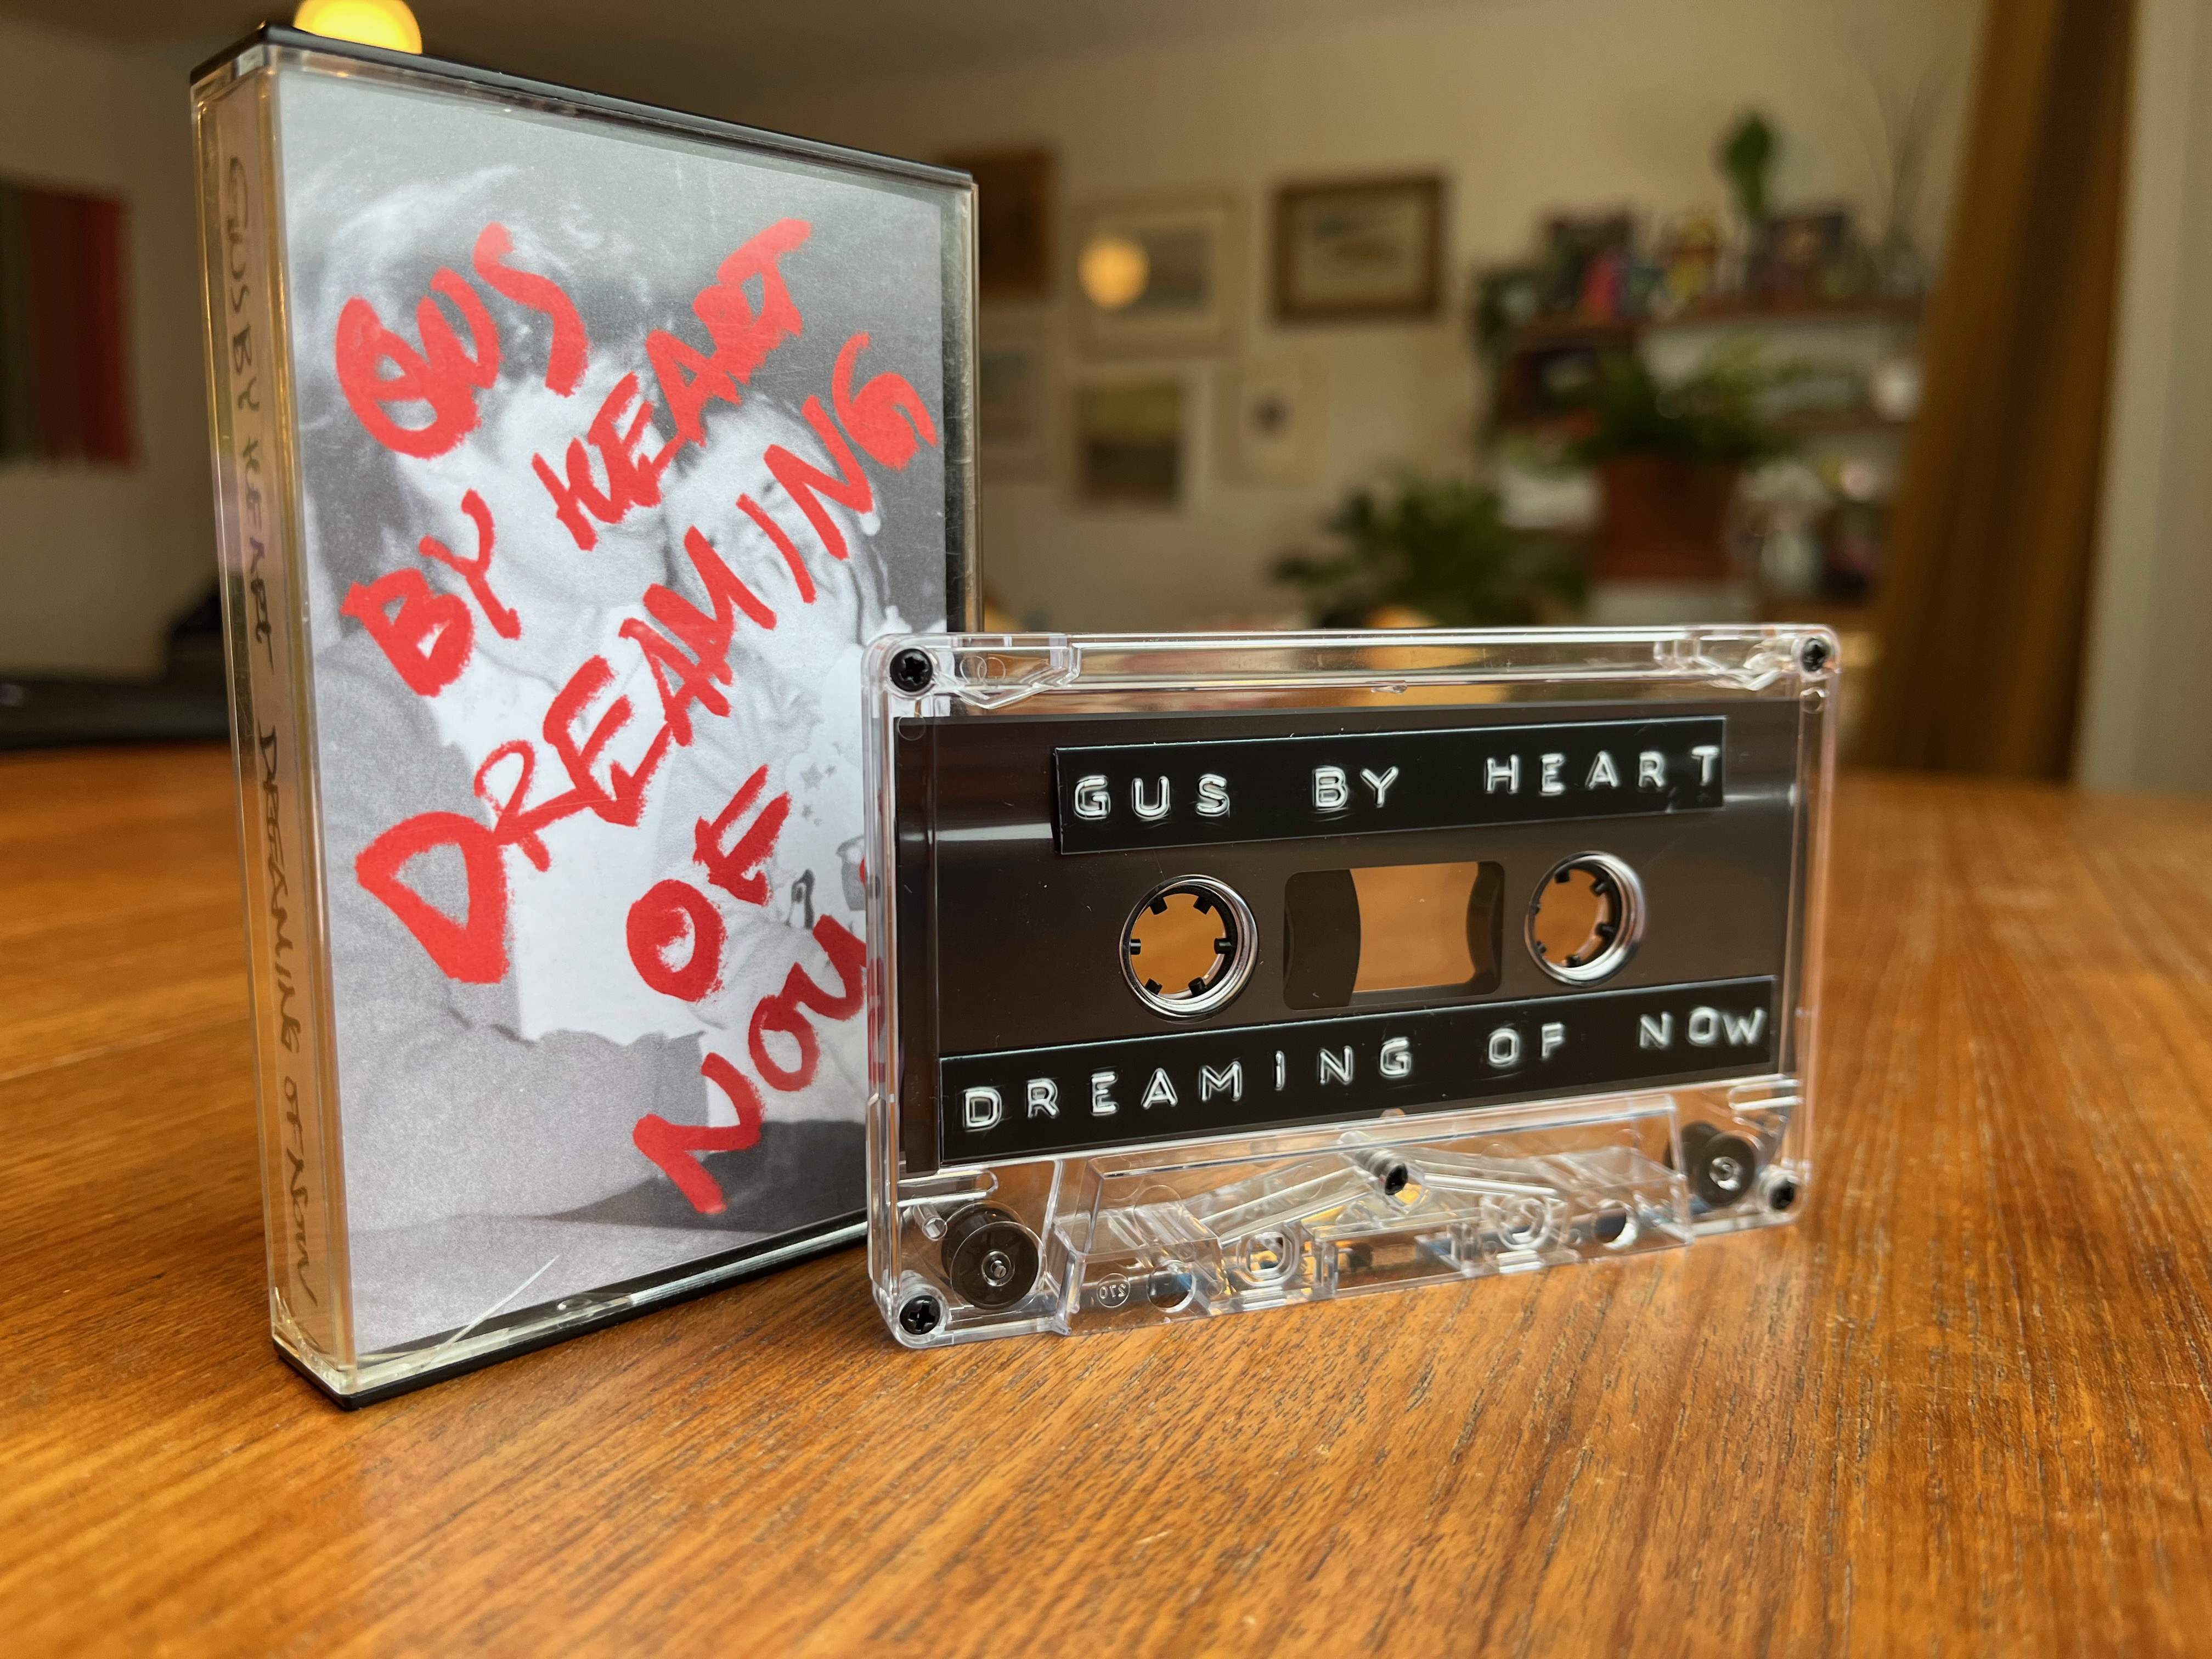 GUS BY HEART DREAMING OF NOW
GUS
BY HEART
DREAMING
OF
NOW
GUS BY HEART
DREAMING OF NOW
270